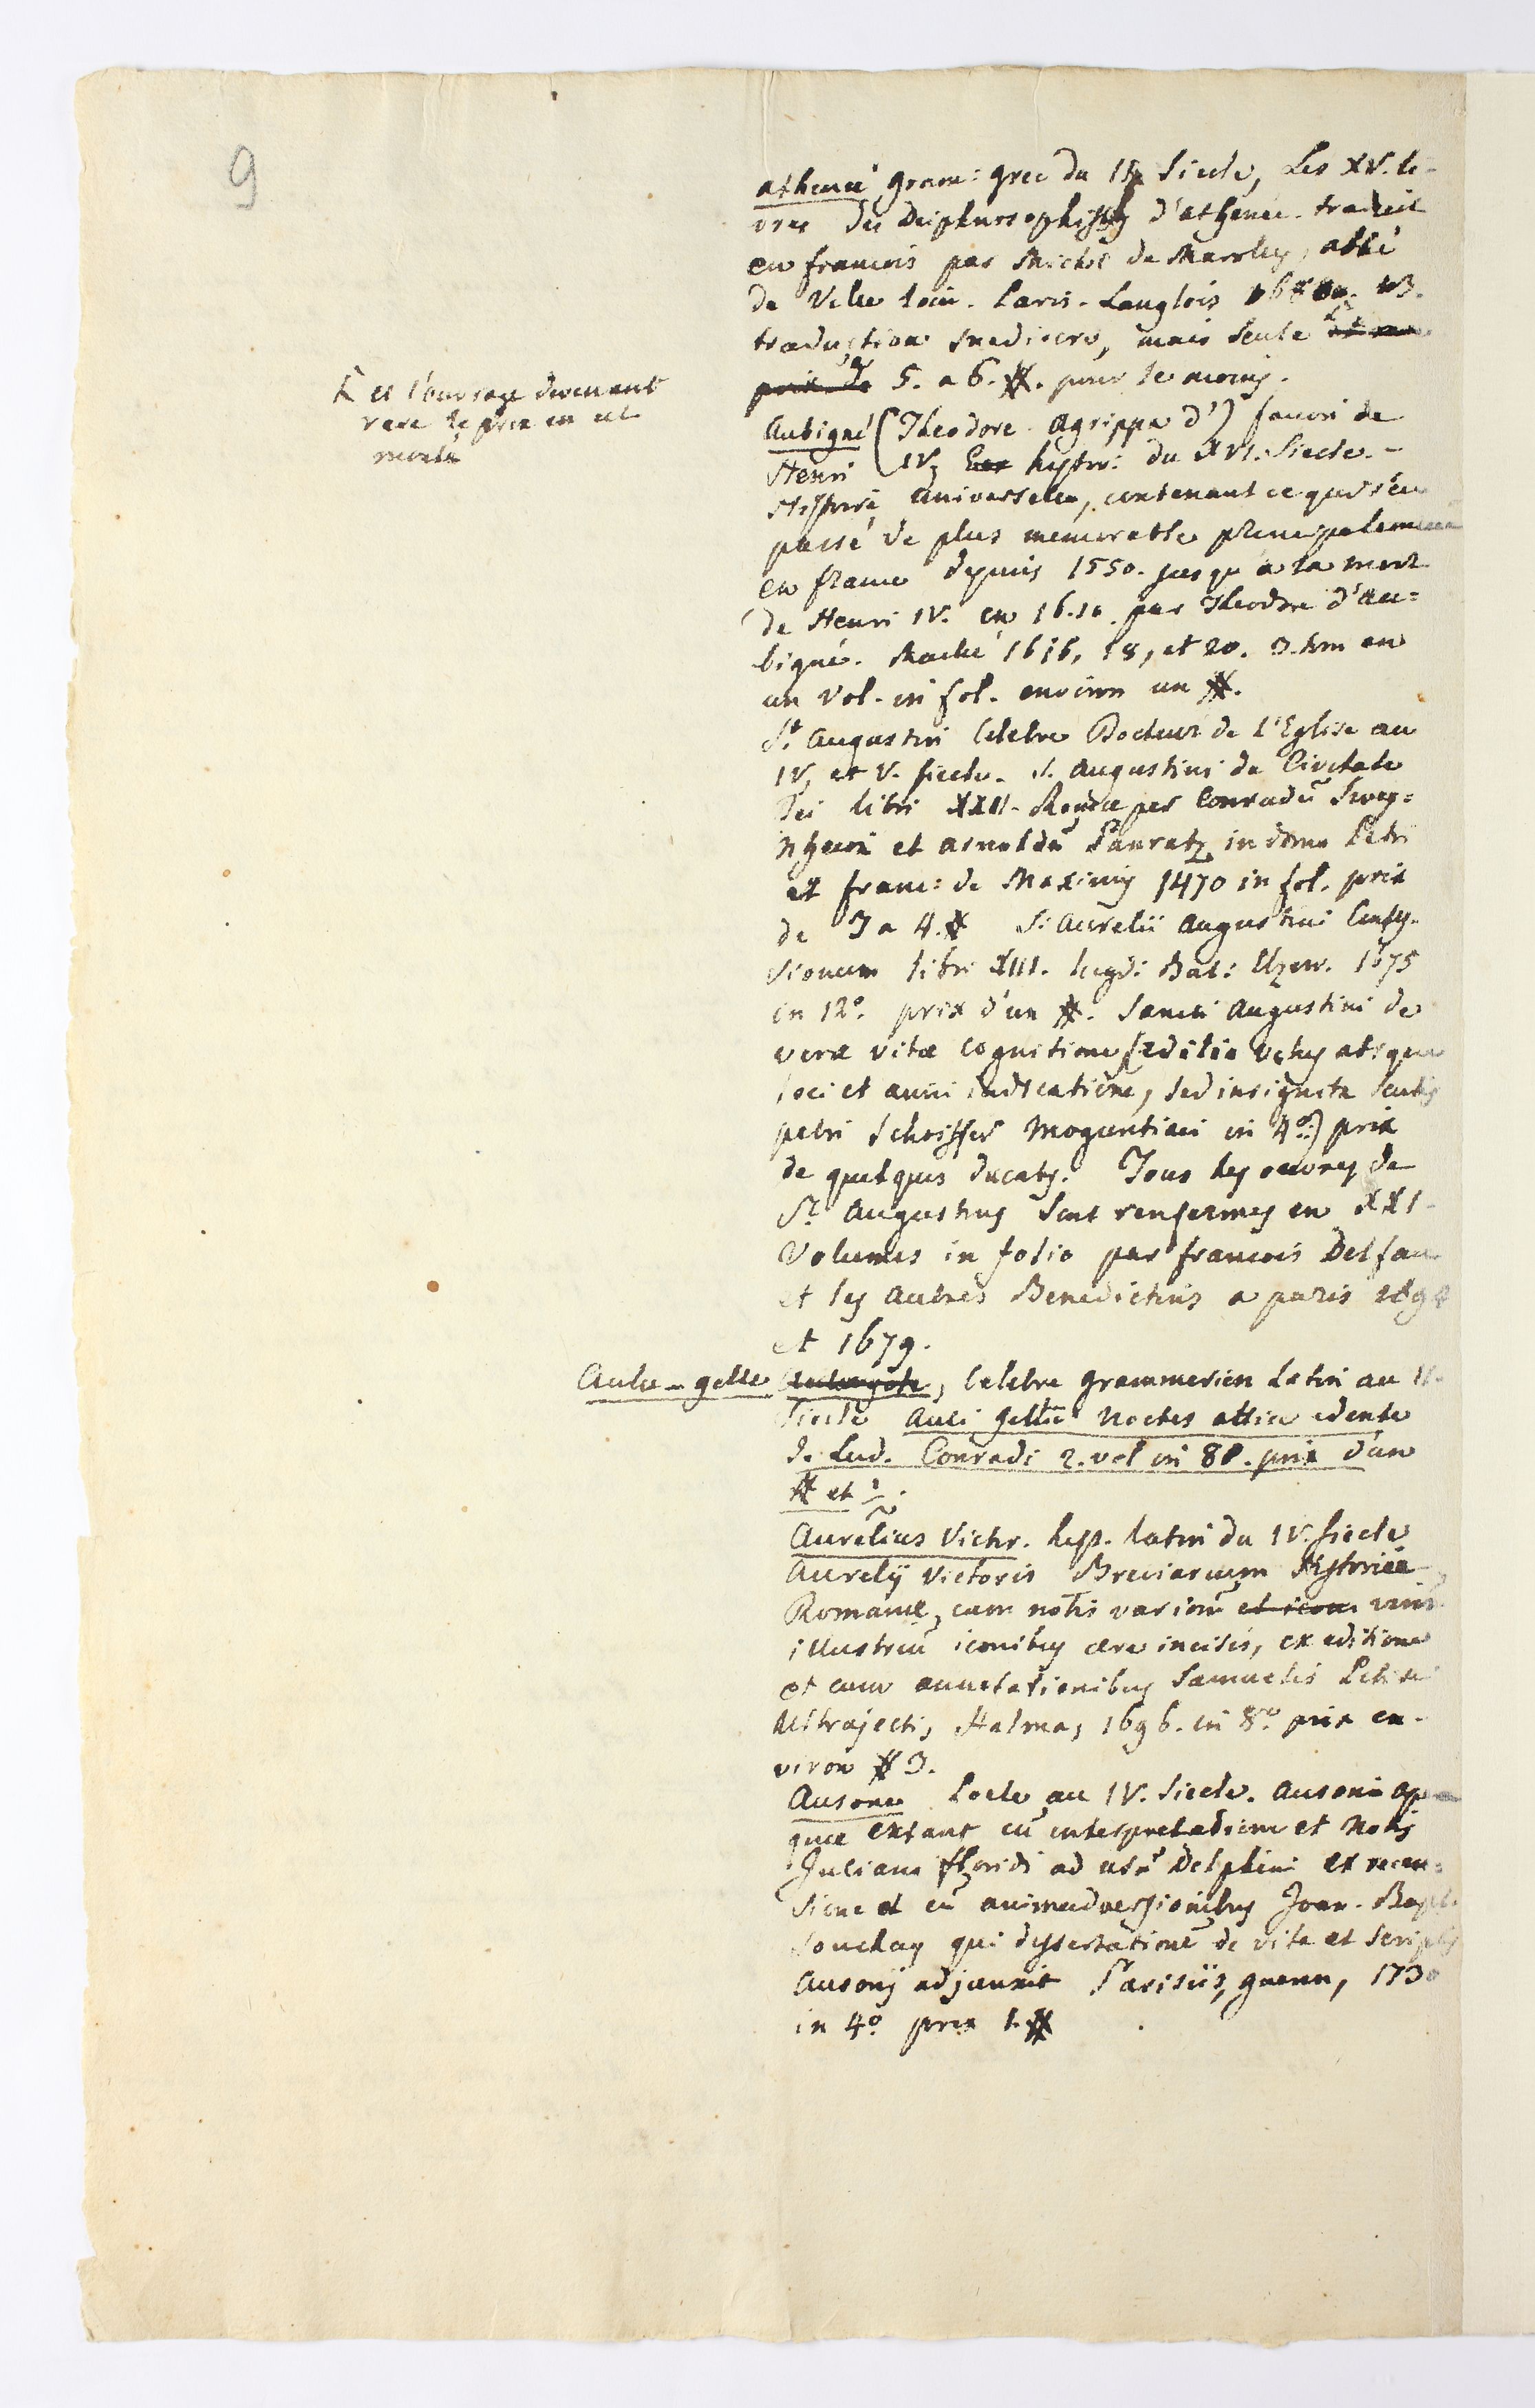 9
athenée gram: grec du II Siecle, Les XV. li-
vres des Deiphnosophistes d'athenée traduit
en francois par Michel de Marolles, abbé
de Villeloin. Paris. Langlois
traduction mediocre, mais seule
prix de 5. a 6. #. pour le moins.
et l'ouvrage devenant
rare le prix en est
monté
Aubigné (Theodore Agrippa d') favori de
Henri IV, hystor: du XVI. Siecle. -
Histoire universelle, contenant ce qui s'en
passé de plus memorable principalement
en france depuis 1550. jusqu'a la mort
de Henri IV. en 1610. par Theodore d'Au=
bigné. Maillé 1616, 18, et 20. 3. tom en
un vol. in fol. environ un #.
St. Augustin Celebre Docteur de l'Eglise au
IV, et V. siecle. S. Augustini de Civitate
Dei libri XXII. Romae per Conradū Swey=
nheim et arnoldū Panratz in domo Petri
et franc: de Maximis 1470 in fol. prix
de 3 a 4. # S. Aurelii Augustini Confes-
sionum libri XIII. lugd: Bat: Elzev. 1675
in 12°. prix d'un #. Sancti Augustini de
verae vitae cognitione (Editio vetus absque
loci et anni indicatione, sed insignita scutis
petri Schoiffer Moguntiaci in 4°:) prix
de quelques ducats. Tous les oeuvres de
St. Augustins sont renfermes en XXI-
Volumes in folio par francois Delfau
et les autres Benedictins a paris
et 1679.
Aulu-gelle, Celebre Grammerien Latin au II.
Siecle Auli Gellii Noctes attica edente
J. Lud. Conradi 2. vol in 8°. prix d'un
# et
Aurelius Victor. hist. latin du IV. siecle
Aurelij Victoris Breviarium Historiae
Romanae, cum notis variorū et icon viror
illustriū iconibus aere incisis, ex editione
et cum annotationibus Samuelis Pitisci
Ultrajecti, Halma, 1696. in 8vo. prix en-
viron # 3.
Ausone Poete au IV. Siecle. Ausonii opera
quae extant cū interpretatione et Notis
Juliani floridi ad usū Delphini ex recen=
sione et cū animadversionibus Joan. Bapt.
Souchay qui dissertationē de vita et scriptis
Ausonij adjunxit Parisiis, guerin, 1730
in 4°. prix 1. #